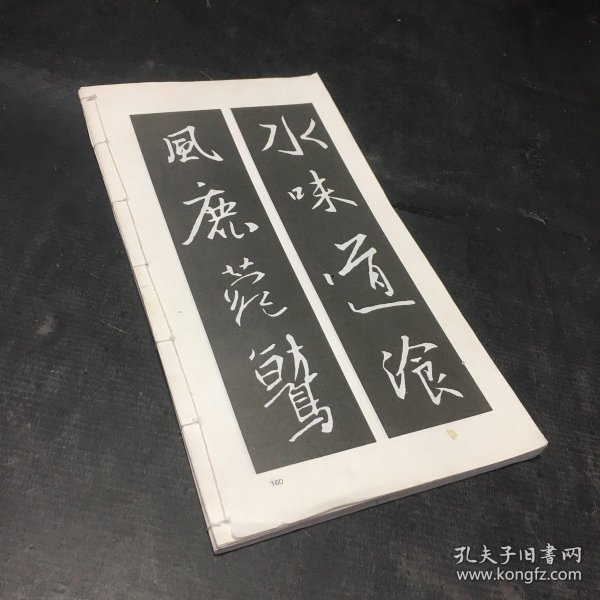 水味道湌
風鹿菀鷲
160
孔夫子旧書网
www.kongfz.com